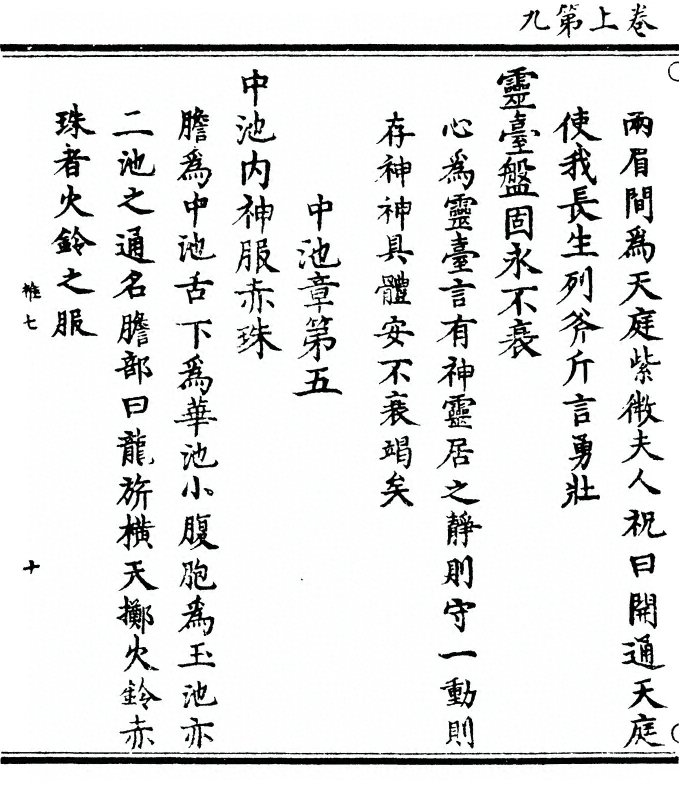 九第上卷
兩眉間為天庭紫微夫人祝曰開通天庭
使我長生列斧斤言勇壯
靈臺盤固永不衰
心為靈臺言有神靈居之靜則守一動則
存神神具體安不衰竭矣
中池章第五
中池內神服赤珠
膽為中池舌下為華池小腹胞為玉池亦
二池之通名膽部曰龍旂橫天擲火鈴赤
珠者火鈴之服
推七
十